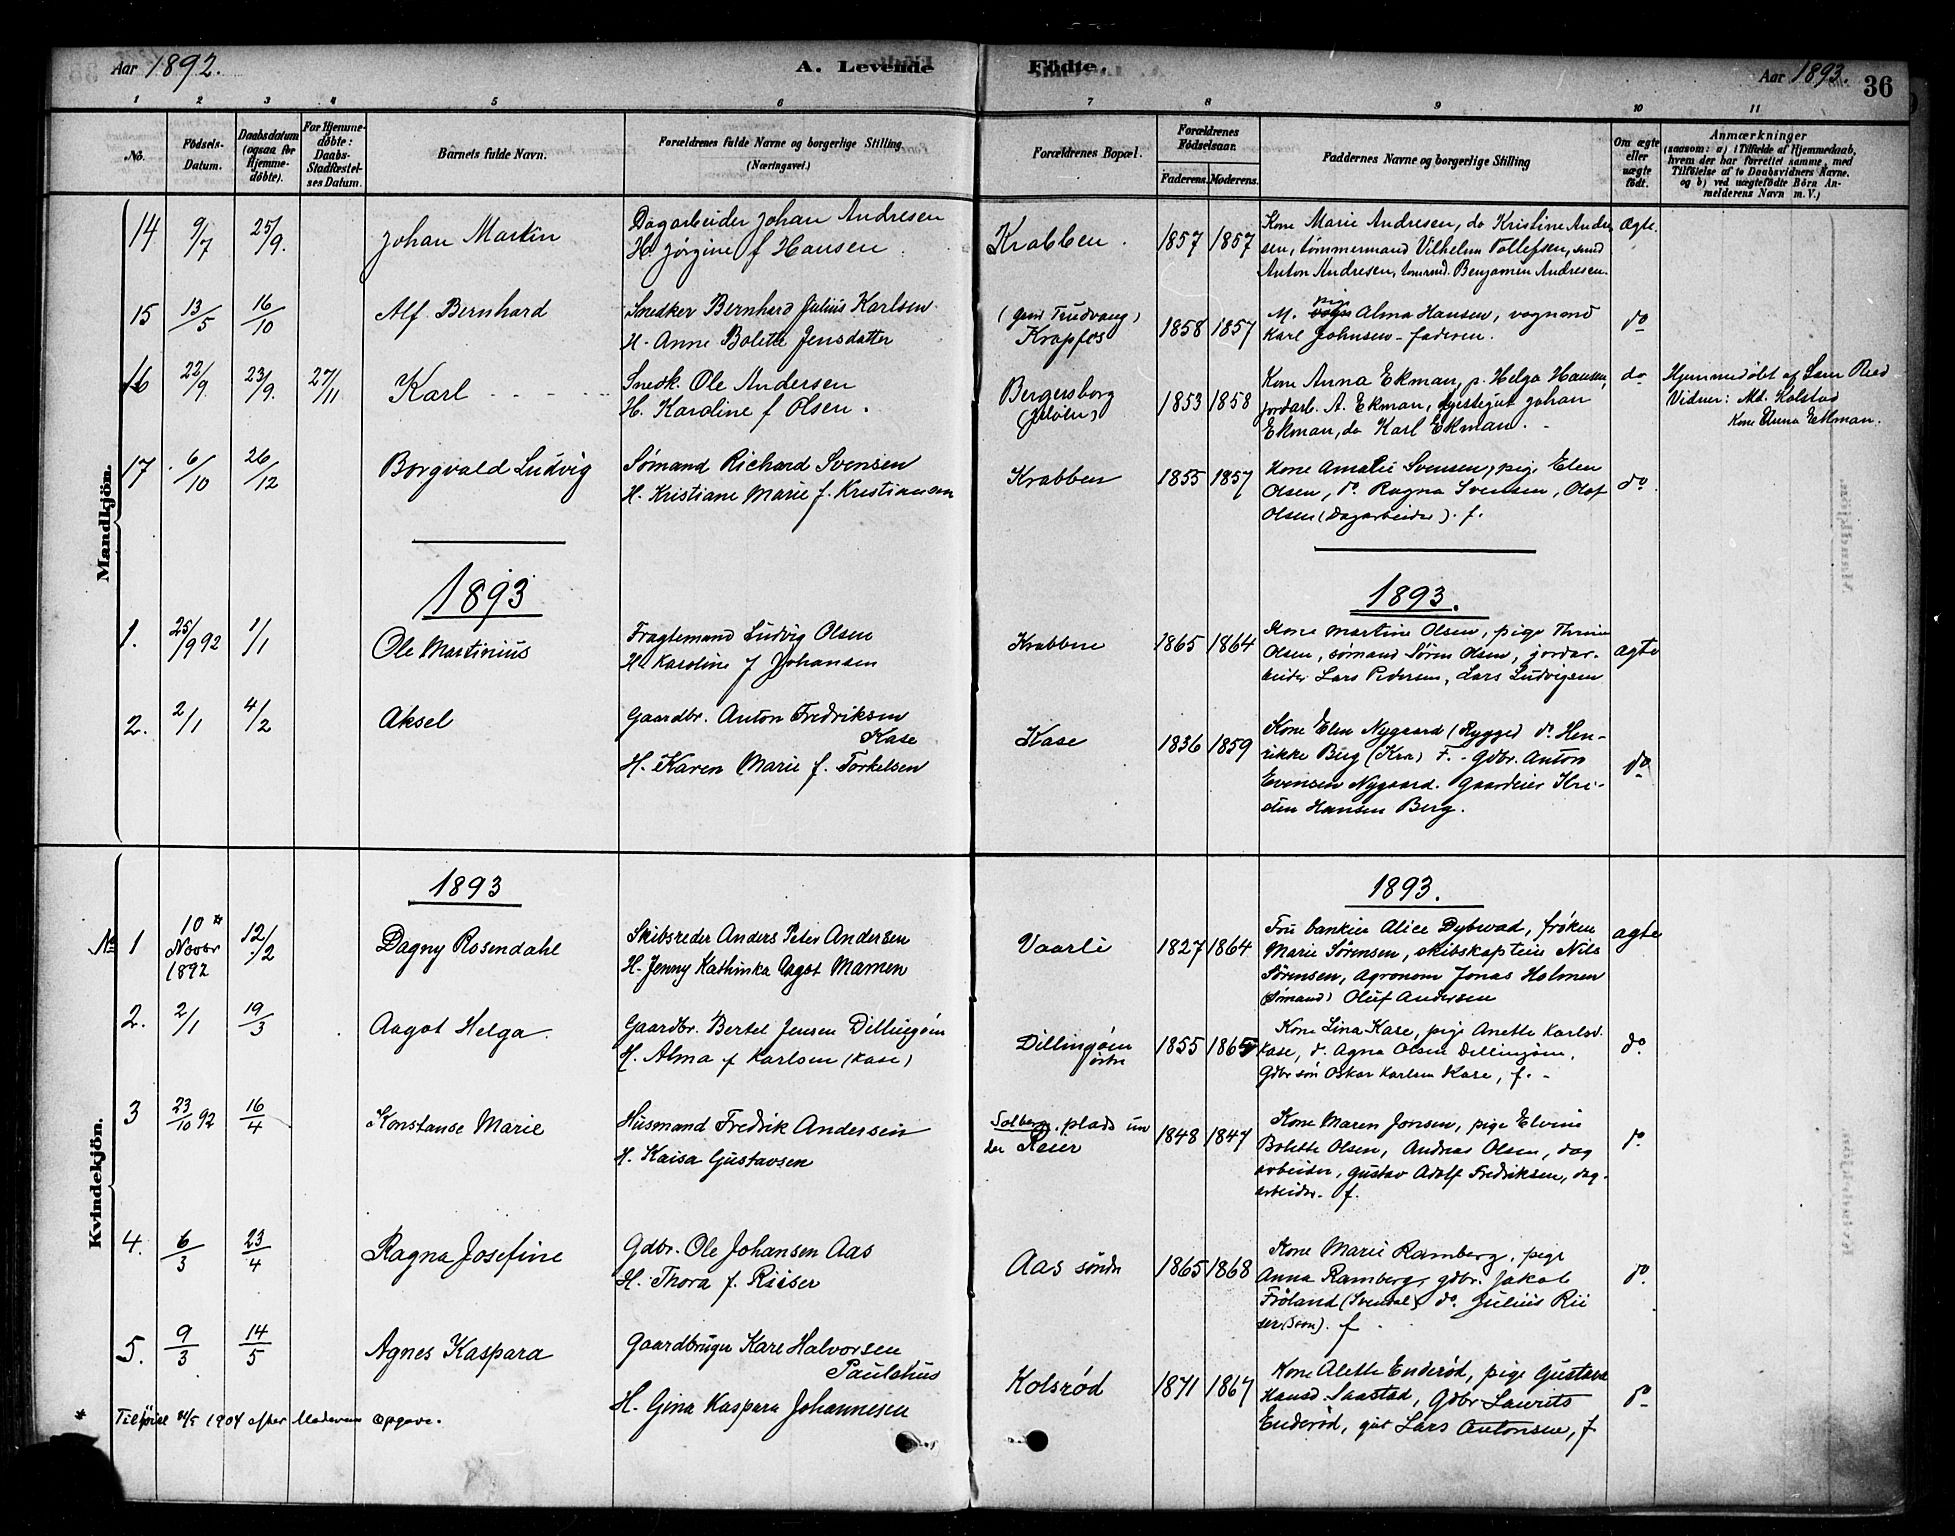 Aar 1892.
A. Levende
Fødte.
Aar 1893.
36
1 2 3 4 5 6 7 8 9 10 11
No.
Fødsels-Datum.
Daabsdatum (ogsaa for Hjemme-døbte).
For Hjemme-døbte: Daabs-Stadfæstel-ses Datum.
Barnets fulde Navn.
Forældrenes fulde Navne og borgerlige Stilling (Næringsvei.)
Forældrenes Bopæl.
Forældrenes Fødselsaar.
Faderens. Moderens.
Faddernes Navne og borgerlige Stilling
Om ægte eller uægte født.
Anmærkninger
(saasom: a) i Tilfælde af Hjemmedaab,
hvem der har forrettet samme, med
Tilføielse af to Daabsvidners Navne.
og b) ved uægtefødte Børn An-
melderens Navn m. V.)
Mandkjön.
14 9/7 25/9. Johan Martin
Dagarbeider Johan Andresen
H. Jørgine f Hansen
Krabben. 1857 1857
Kone Marie Andresen, do Kristine Andre
sen, tømmermand Vilhelm Tollefsen,
Anton Andresen, Benjamin Andresen
Ægte.
15 13/5 16/10 Alf Bernhard
Snedker Bernhard Julius Karlsen
H. Anne Bolette Jensdatter
Krapfos 1858 1857
M. pige Alma Hansen, vognmd
Karl Johnsen - faderen.
do
16 22/9. 23/9. 27/11 Karl
Snedk. Ole Andersen
H. Karoline f Olsen.
Bergersborg
(Jeløen) 1853 1858
Kone Anna Ekman, p. Helga Hansen,
jordarb. A. Ekman, Johan
Ekman, do Karl Ekman.
do
Hjemmedøbt af Lars
Vidner: Md. Kolstad
Kone Anna Ekman.
17 6/10 26/12 Borgvald Ludvig
Sømand Richard Svensen
H. Kristiane Marie f. Kristiansen
Krabben 1855 1857
Kone Amalie Svensen, pige Elen
Olsen, do Ragna Svensen, Olaf
Olsen (Dagarbeider). f.
do
1893
1893.
1. 25/9 92 1/1 Ole Martinius
Fragtemand Ludvig Olsen
H. Karoline f Johansen
Krabben 1865 1864
Kone Martine Olsen, pige
Olsen, sømand Søren Olsen, jordar-
beider Lars Pedersen, Lars Ludvigsen
ægte
2. 2/1 4/2 Aksel
Gaardbr. Anton Fredriksen
Kase
H. Karen Marie f. Torkelsen
Kase 1836 1859
Kone Elen Nygaard (Rygge) do Hen-
rikke Berg (Kra) F. - Gdbr. Anton
Evensen Nygaard. Gaardeier Kri-
sten Hansen Berg.
do
Kvindekjön.
1893
1893.
No 1 10* Novbr 1892 12/2 Dagny Rosendahl
Skibsreder Anders Peter Andersen
H. Jenny Kathinka Aagot Mamen
Vaarli 1827 1864
Fru bankier Alice Dybwad, frøken
Marie Sørensen, skibskaptein Nils
Sørensen, Agronom Jonas Holmen
(Sømand) Oluf Andersen
ægte
2. 2/1 19/3 Aagot Helga.
Gaardbr. Bertel Jensen Dillingøen
H. Alma f Karlsen (Kase)
Dillingøen
østre 1855 1865
Kone Lina Kase, pige Anette Karlsd.
Kase, do. Agna Olsen Dillingøen,
Gdbrsøn Oskar Karlsen Kase, f. -
do
3 23/10 92 16/4 Konstanse Marie
Husmand Fredrik Andersen
H. Kaisa Gustavsen
Solberg, plads un
der Reier 1848 1847
Kone Maren Jonsen, pige Elvine
Bolette Olsen, Andreas Olsen, dag
arbeider, Gustav Adolf Fredriksen, dag-
arbeider. f.
do
4. 6/3 23/4 Ragna Josefine
Gdbr. Ole Johansen Aas
H. Thora f. Riiser
Aas søndre 1865 1868
Kone Marie Ramberg, pige
Anna Ramberg, gdbr. Jakob
Frøland (Svendal) do. Julius Rii
ser (Soon). f
do.
5. 9/3 14/5 Agnes Kaspara
Gaardbruger Kare Halvorsen
Paulshus
H. Gina Kaspara Johannesen
Kolsrød 1871 1867
Kone Alette Enderød, pige Gustava
Hansd Saastad, Gdbr Laurits
Enderød, gut Lars Antonsen, f
do
* Tilføiet 1904 efter Moderens Opgave.